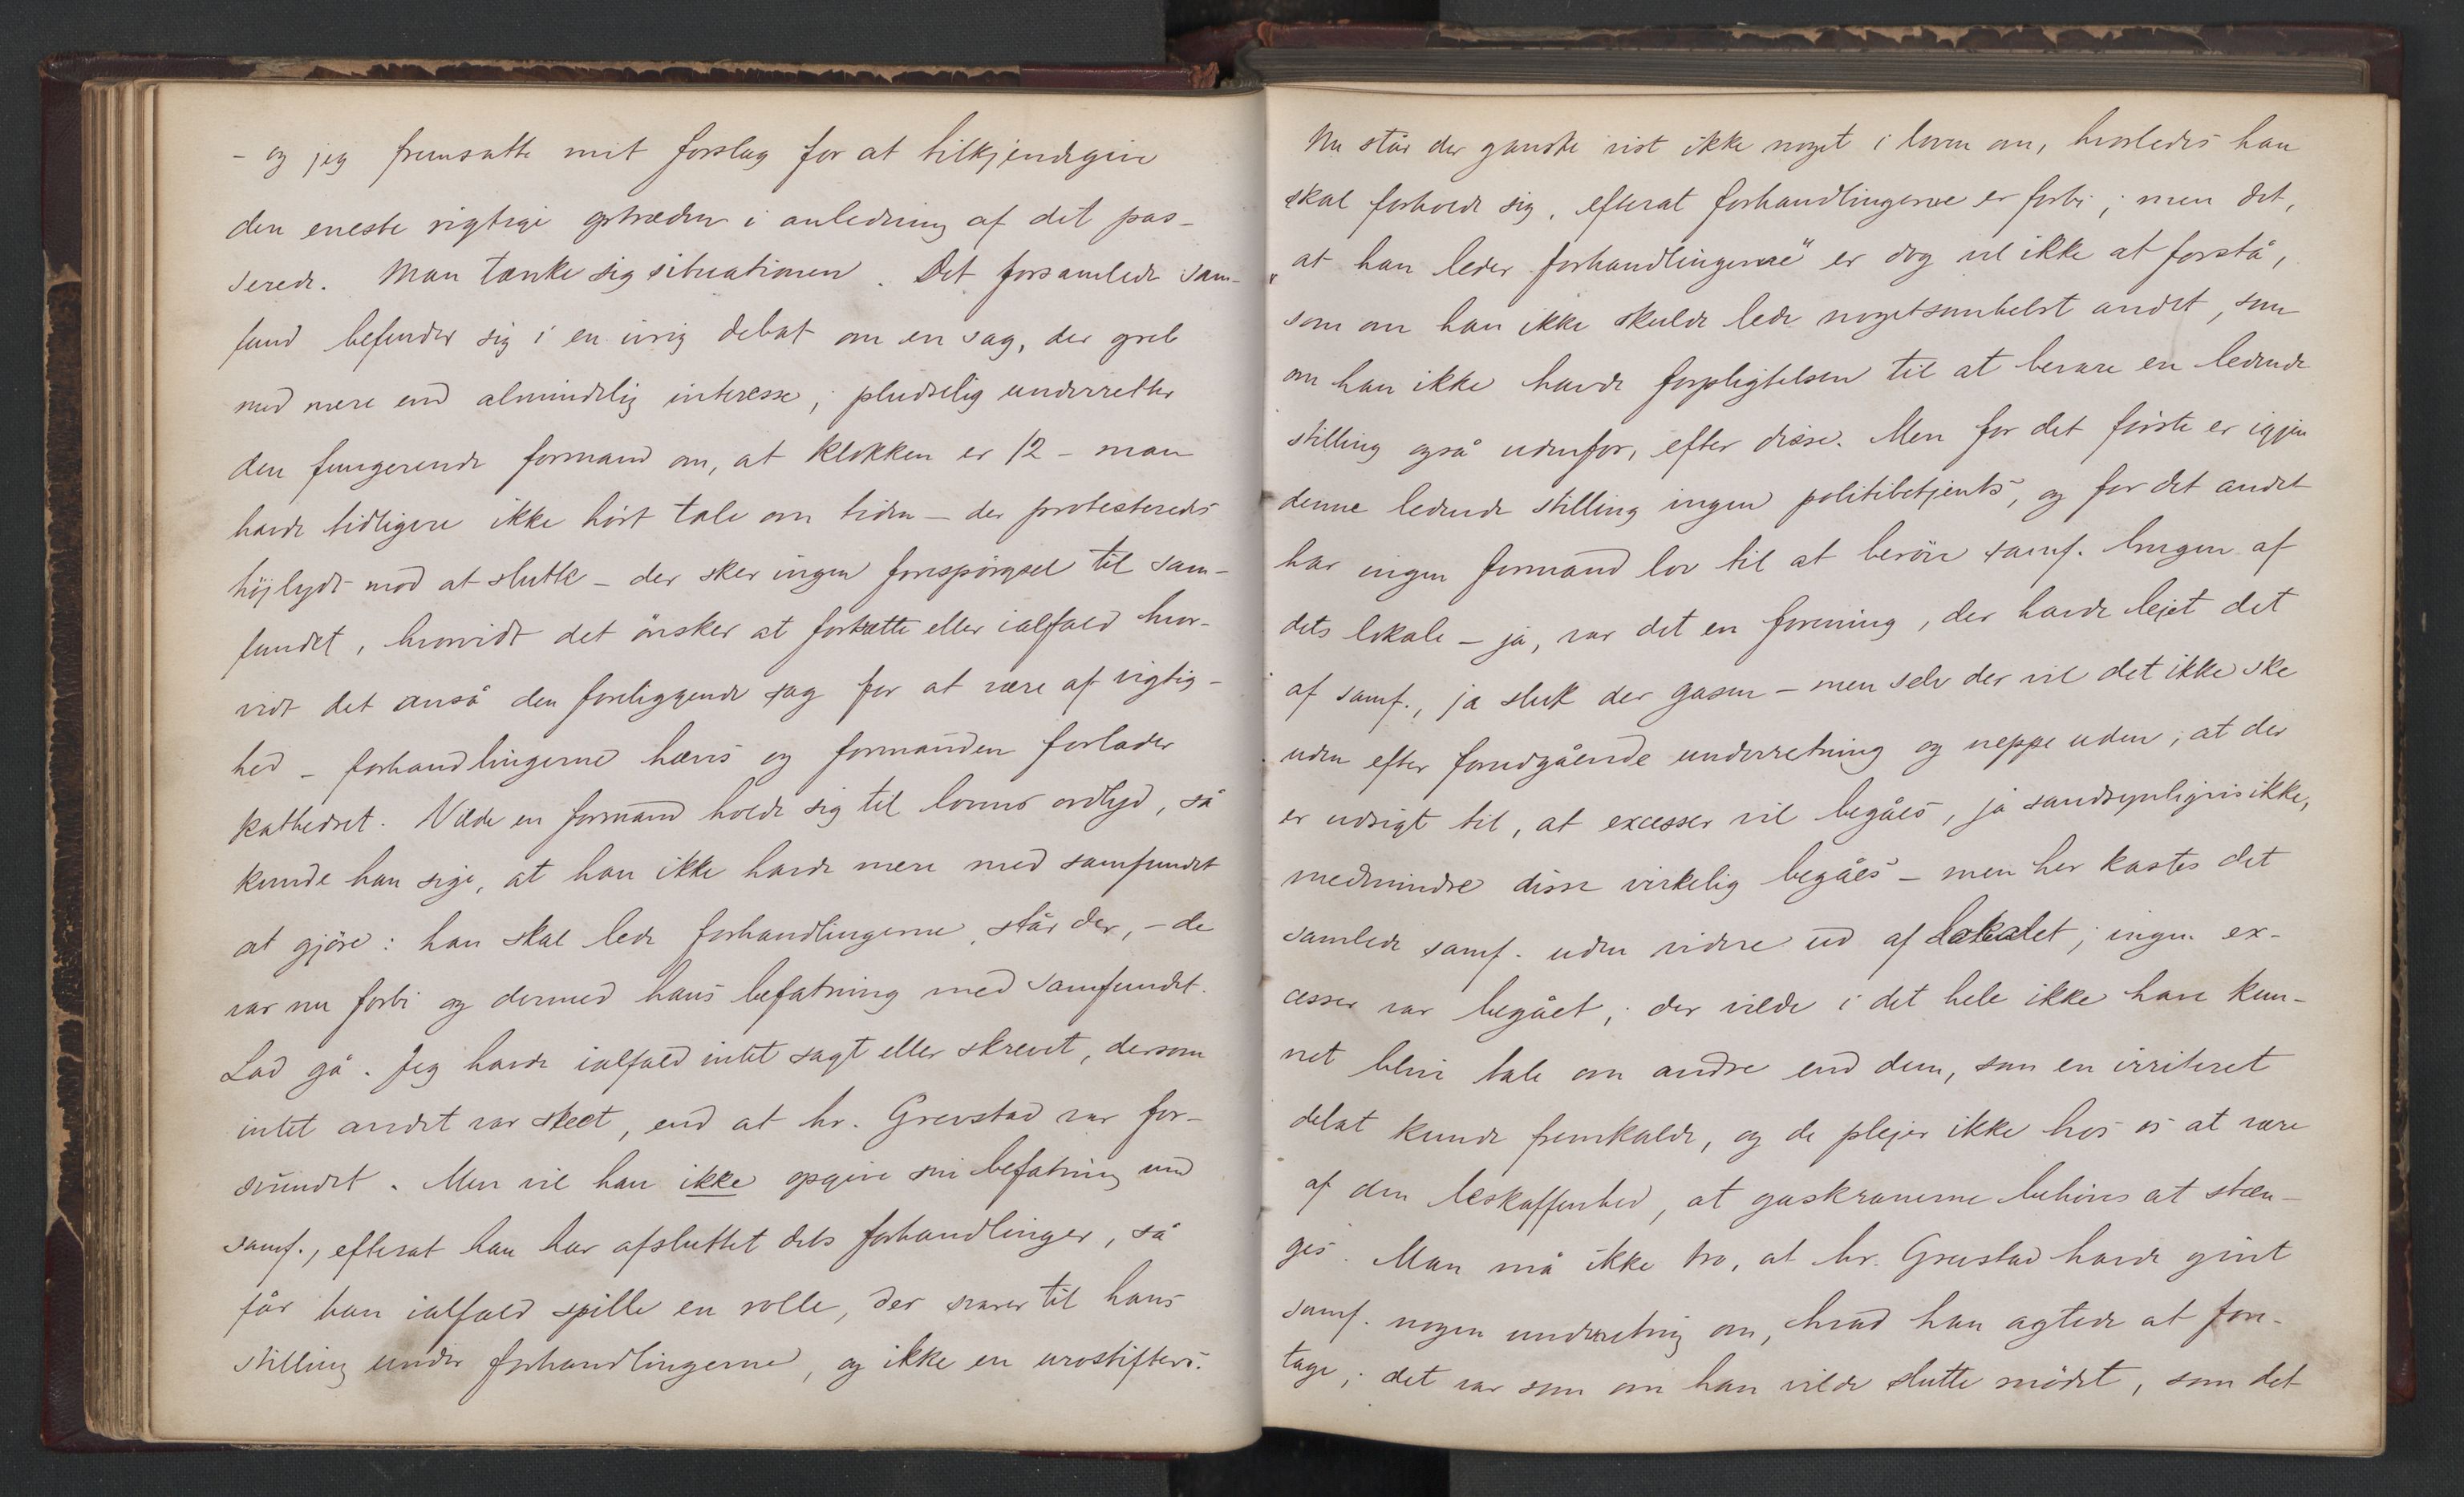 - og jeg fremsatte mit forslag for at tilkjendegive
den eneste rigtige optræden i anledning af det pas-
serede. Man tænke sig situationen. Det forsamlede sam-
fund befinder sig i en ivrig debat om en sag, der greb
med mere end almindelig interesse; pludselig underretter
den fungerende formand om, at klokken er 12 - man
havde tidligere ikke hört tale om tiden - der protesteredes
höjlydt mod at slutte - der sker ingen forespörgsel til sam-
fundet, hvorvidt det önsker at fortsætte eller ialfald hvor-
vidt det anså den foreliggende sag for at være af vigtig-
hed - forhandlingerne hæves og formanden forlader
kathedret. Vilde en formand holde sig til lovens ordlyd, så
kunde han sige, at han ikke havde mere med samfundet
at gjöre: han skal lede forhandlingerne, står der, - de
var nu forbi og dermed hans befatning med samfundet.
Lad gå. Jeg havde ialfald intet sagt eller skrevet, dersom
intet andet var skeet, end at hr. Grevstad var for-
svundet. Men vil han ikke opgive sin befatning med
samf., efterat han har afsluttet dets forhandlinger, så
får han ialfald spille en rolle, der svarer til hans
stilling under forhandlingerne, og ikke en urostifters.
Nu står der ganske vist ikke noget i loven om, hvorledes han
skal forholde sig, efterat forhandlingerne er forbi; men det,
"at han leder forhandlingerne" er dog vel ikke at forstå,
som om han ikke skulde lede nogetsomhelst andet, som
om han ikke havde forpligtelsen til at bevare en ledende
stilling også udenfor, efter disse. Men for det förste er igjen
denne ledende stilling ingen politibetjents, og for det andet
har ingen formand lov til at beröve samf. brugen af
dets lokale - ja, var det en forening, der havde lejet det
af samf., ja sluk der gasen - men selv der vil det ikke ske
uden efter forudgående underretning og neppe uden, at der
er udsigt til, at excesser vil begåes, ja sandsynligvis ikke,
medmindre disse virkelig begåes - men her kastes det
samlede samf. uden videre ud af lokalet; ingen ex-
cesser var begået; der vilde i det hele ikke have kun-
net blive tale om andre end dem, som en irriteret
debat kunde fremkalde, og de plejer ikke hos os at være
af den beskaffenhed, at gaskranerne behöves at stæn-
ges. Man må ikke tro, at hr. Grevstad havde givet
samf. nogen underretning om, hvad han agtede at fore-
tage; det var som om han vilde slutte mödet, som det